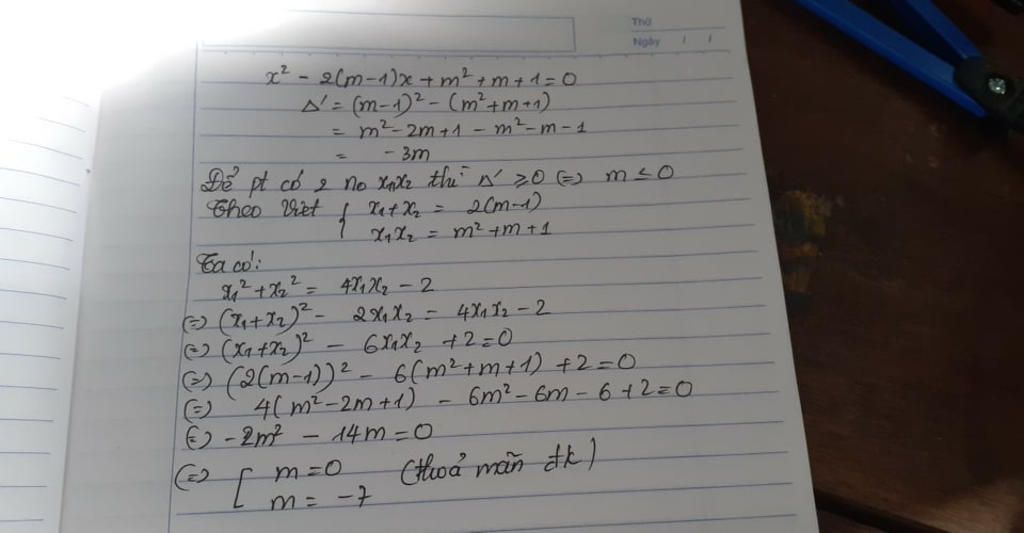 Thứ
Ngày / /
x² - 2(m-1)x + m² + m + 1 = 0
Δ' = (m-1)² - (m² + m + 1)
= m² - 2m + 1 - m² - m - 1
= - 3m
Để pt có 2 no x₁x₂ thì Δ' ≥ 0 (=) m ≤ 0
Theo Viet { x₁ + x₂ = 2(m-1)
x₁x₂ = m² + m + 1
Ta có:
x₁² + x₂² = 4x₁x₂ - 2
(=) (x₁ + x₂)² - 2x₁x₂ = 4x₁x₂ - 2
(=) (x₁ + x₂)² - 6x₁x₂ + 2 = 0
(=) (2(m-1))² - 6(m² + m + 1) + 2 = 0
(=) 4(m² - 2m + 1) - 6m² - 6m - 6 + 2 = 0
(=) - 2m² - 14m = 0
(=) [ m = 0 (thoả mãn đk)
m = -7